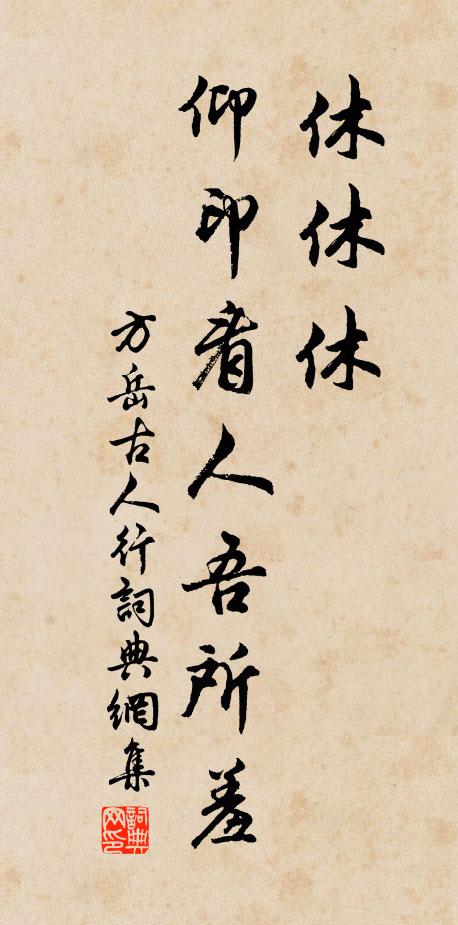 休休休
仰印看人吾所羞
方岳古人行詞典網集
詞典网印